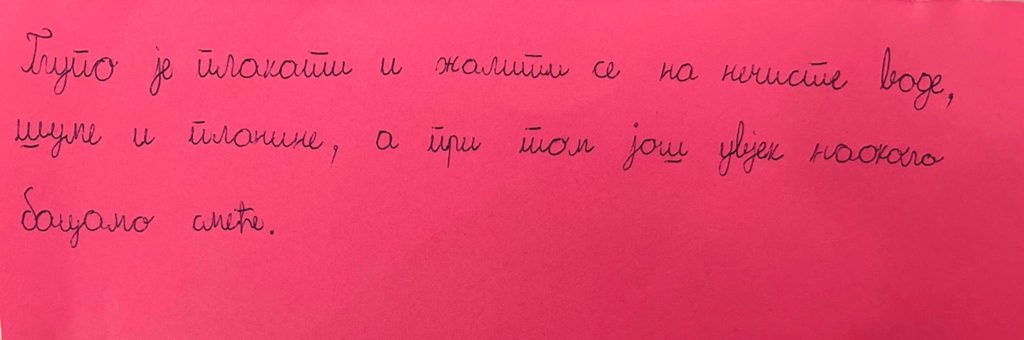 Глупо је плакати и жалити се на нечисте воде,
шуме и планине, а при том још увјек наоколо
бацамо смеће.